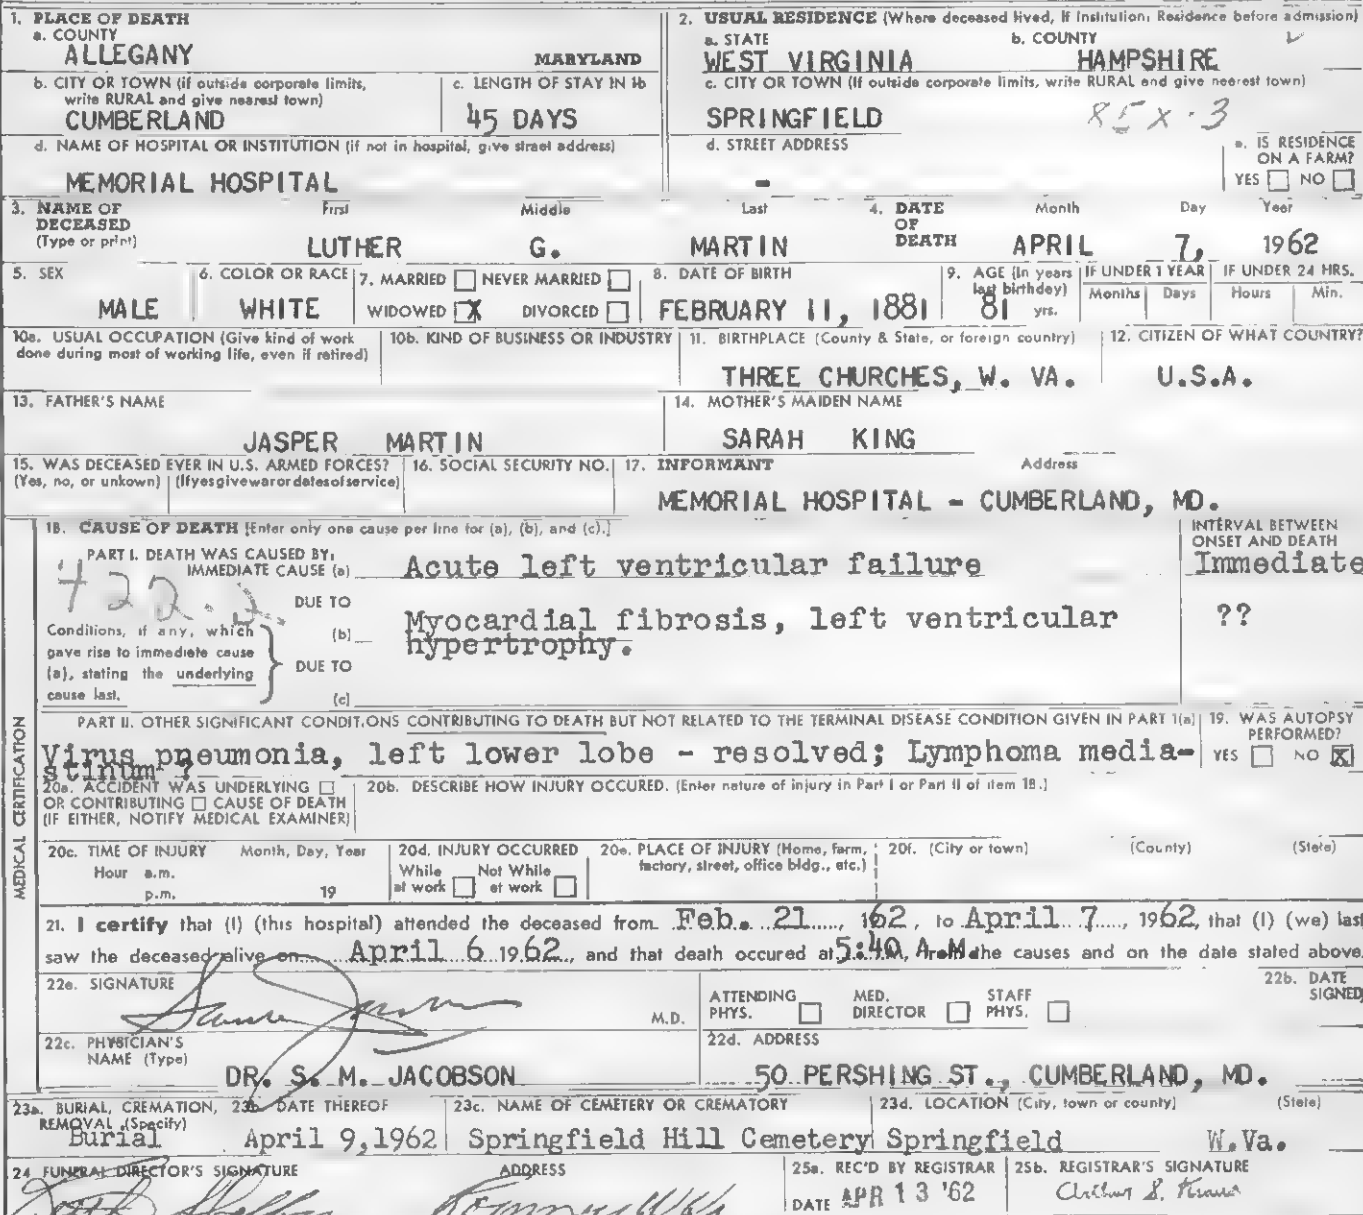 1. PLACE OF DEATH
a. COUNTY
ALLEGANY MARYLAND
2. USUAL RESIDENCE (Where deceased lived, If Institution: Residence before admission)
a. STATE b. COUNTY
WEST VIRGINIA HAMPSHIRE
b. CITY OR TOWN (if outside corporate limits,
write RURAL and give nearest town)
CUMBERLAND
c. LENGTH OF STAY IN 1b
45 DAYS
c. CITY OR TOWN (If outside corporate limits, write RURAL and give nearest town)
SPRINGFIELD 85X·3
d. NAME OF HOSPITAL OR INSTITUTION (if not in hospital, give street address)
MEMORIAL HOSPITAL
d. STREET ADDRESS
-
e. IS RESIDENCE
ON A FARM?
YES NO
3. NAME OF
DECEASED
(Type or print)
First Middle Last
LUTHER G. MARTIN
4. DATE
OF
DEATH
Month Day Year
APRIL 7, 1962
5. SEX
MALE
6. COLOR OR RACE
WHITE
7. MARRIED NEVER MARRIED
WIDOWED X DIVORCED
8. DATE OF BIRTH
FEBRUARY 11, 1881
9. AGE (In years
last birthday)
81 yrs.
IF UNDER 1 YEAR
Months Days
IF UNDER 24 HRS.
Hours Min.
10a. USUAL OCCUPATION (Give kind of work
done during most of working life, even if retired)
10b. KIND OF BUSINESS OR INDUSTRY
11. BIRTHPLACE (County & State, or foreign country)
THREE CHURCHES, W. VA.
12. CITIZEN OF WHAT COUNTRY?
U.S.A.
13. FATHER'S NAME
JASPER MARTIN
14. MOTHER'S MAIDEN NAME
SARAH KING
15. WAS DECEASED EVER IN U.S. ARMED FORCES?
(Yes, no, or unkown) (Ifyesgivewarordatesofservice)
16. SOCIAL SECURITY NO.
17. INFORMANT Address
MEMORIAL HOSPITAL - CUMBERLAND, MD.
MEDICAL CERTIFICATION
18. CAUSE OF DEATH [Enter only one cause per line for (a), (b), and (c).]
INTERVAL BETWEEN
ONSET AND DEATH
PART I. DEATH WAS CAUSED BY:
IMMEDIATE CAUSE (a) Acute left ventricular failure Immediate
422.2
DUE TO
Conditions, if any, which
gave rise to immediate cause
(a), stating the underlying
cause last.
(b) Myocardial fibrosis, left ventricular ??
hypertrophy.
DUE TO
(c)
PART II. OTHER SIGNIFICANT CONDITIONS CONTRIBUTING TO DEATH BUT NOT RELATED TO THE TERMINAL DISEASE CONDITION GIVEN IN PART 1(a)
Virus pneumonia, left lower lobe - resolved; Lymphoma media-
stinum ?
19. WAS AUTOPSY
PERFORMED?
YES NO X
20a. ACCIDENT WAS UNDERLYING
OR CONTRIBUTING CAUSE OF DEATH
(IF EITHER, NOTIFY MEDICAL EXAMINER)
20b. DESCRIBE HOW INJURY OCCURED. (Enter nature of injury in Part I or Part II of item 18.)
20c. TIME OF INJURY Month, Day, Year
Hour a.m.
p.m. 19
20d. INJURY OCCURRED
While Not While
at work at work
20e. PLACE OF INJURY (Home, farm,
factory, street, office bldg., etc.)
20f. (City or town) (County) (State)
21. I certify that (I) (this hospital) attended the deceased from Feb. 21, 162, to April 7, 1962, that (I) (we) last
saw the deceased alive on April 6 1962, and that death occured at 5:40, A.M. the causes and on the date stated above.
22a. SIGNATURE
M.D.
ATTENDING
PHYS.
MED.
DIRECTOR
STAFF
PHYS.
22b. DATE
SIGNED
22c. PHYSICIAN'S
NAME (Type)
DR. S. M. JACOBSON
22d. ADDRESS
50 PERSHING ST., CUMBERLAND, MD.
23a. BURIAL, CREMATION,
REMOVAL (Specify)
Burial
23b. DATE THEREOF
April 9,1962
23c. NAME OF CEMETERY OR CREMATORY
Springfield Hill Cemetery
23d. LOCATION (City, town or county) (State)
Springfield W.Va.
24 FUNERAL DIRECTOR'S SIGNATURE ADDRESS
25a. REC'D BY REGISTRAR
DATE APR 13 '62
25b. REGISTRAR'S SIGNATURE
Arthur S.